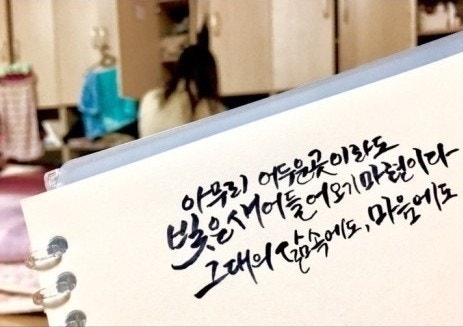 아무리 어두운곳이라도
빛은새어들어오기마련이다
그대의 삶속에도, 마음에도